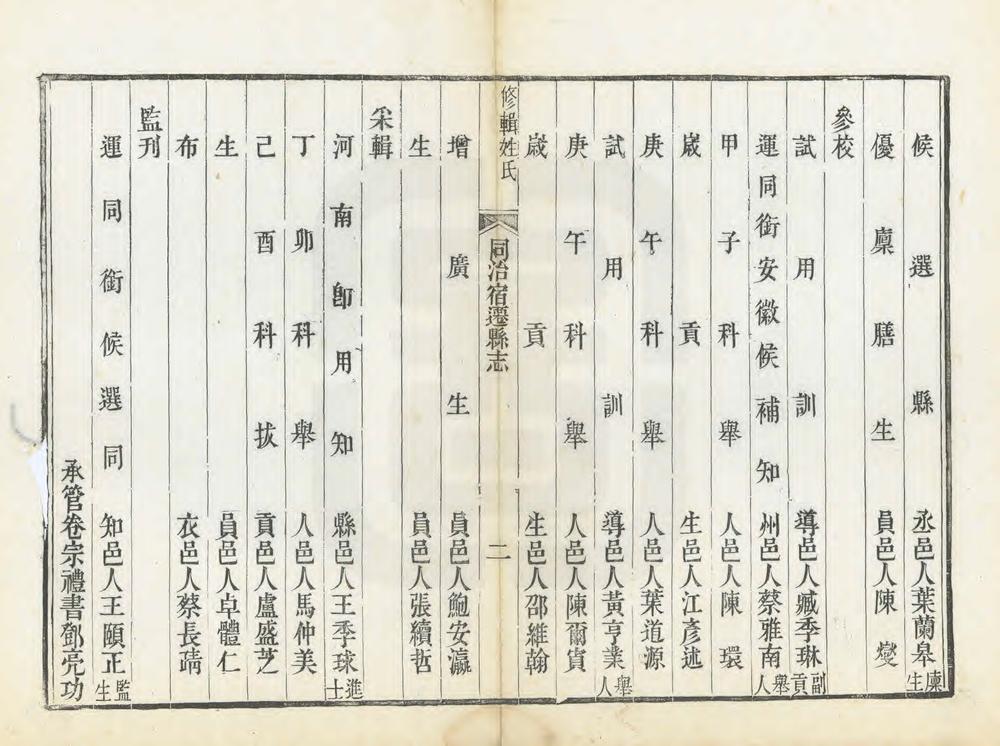 候選縣丞邑人葉蘭皋廩生
優廩膳生員邑人陳燮
參校
試用訓導邑人臧季琳副貢
運同銜安徽候補知州邑人蔡雅南舉人
甲子科舉人邑人陳環
歲貢生邑人江彥述
庚午科舉人邑人葉道源
試用訓導邑人黃亨業舉人
庚午科舉人邑人陳爾賓
歲貢生邑人邵維翰
修輯姓氏
同治宿遷縣志
二
增廣生員邑人鮑安瀛
生員邑人張續哲
采輯
河南卽用知縣邑人王季球進士
丁卯科舉人邑人馬仲美
己酉科拔貢邑人盧盛芝
生員邑人卓體仁
布衣邑人蔡長晴
監刋
運同銜候選同知邑人王頤正監生
承管卷宗禮書鄧亮功